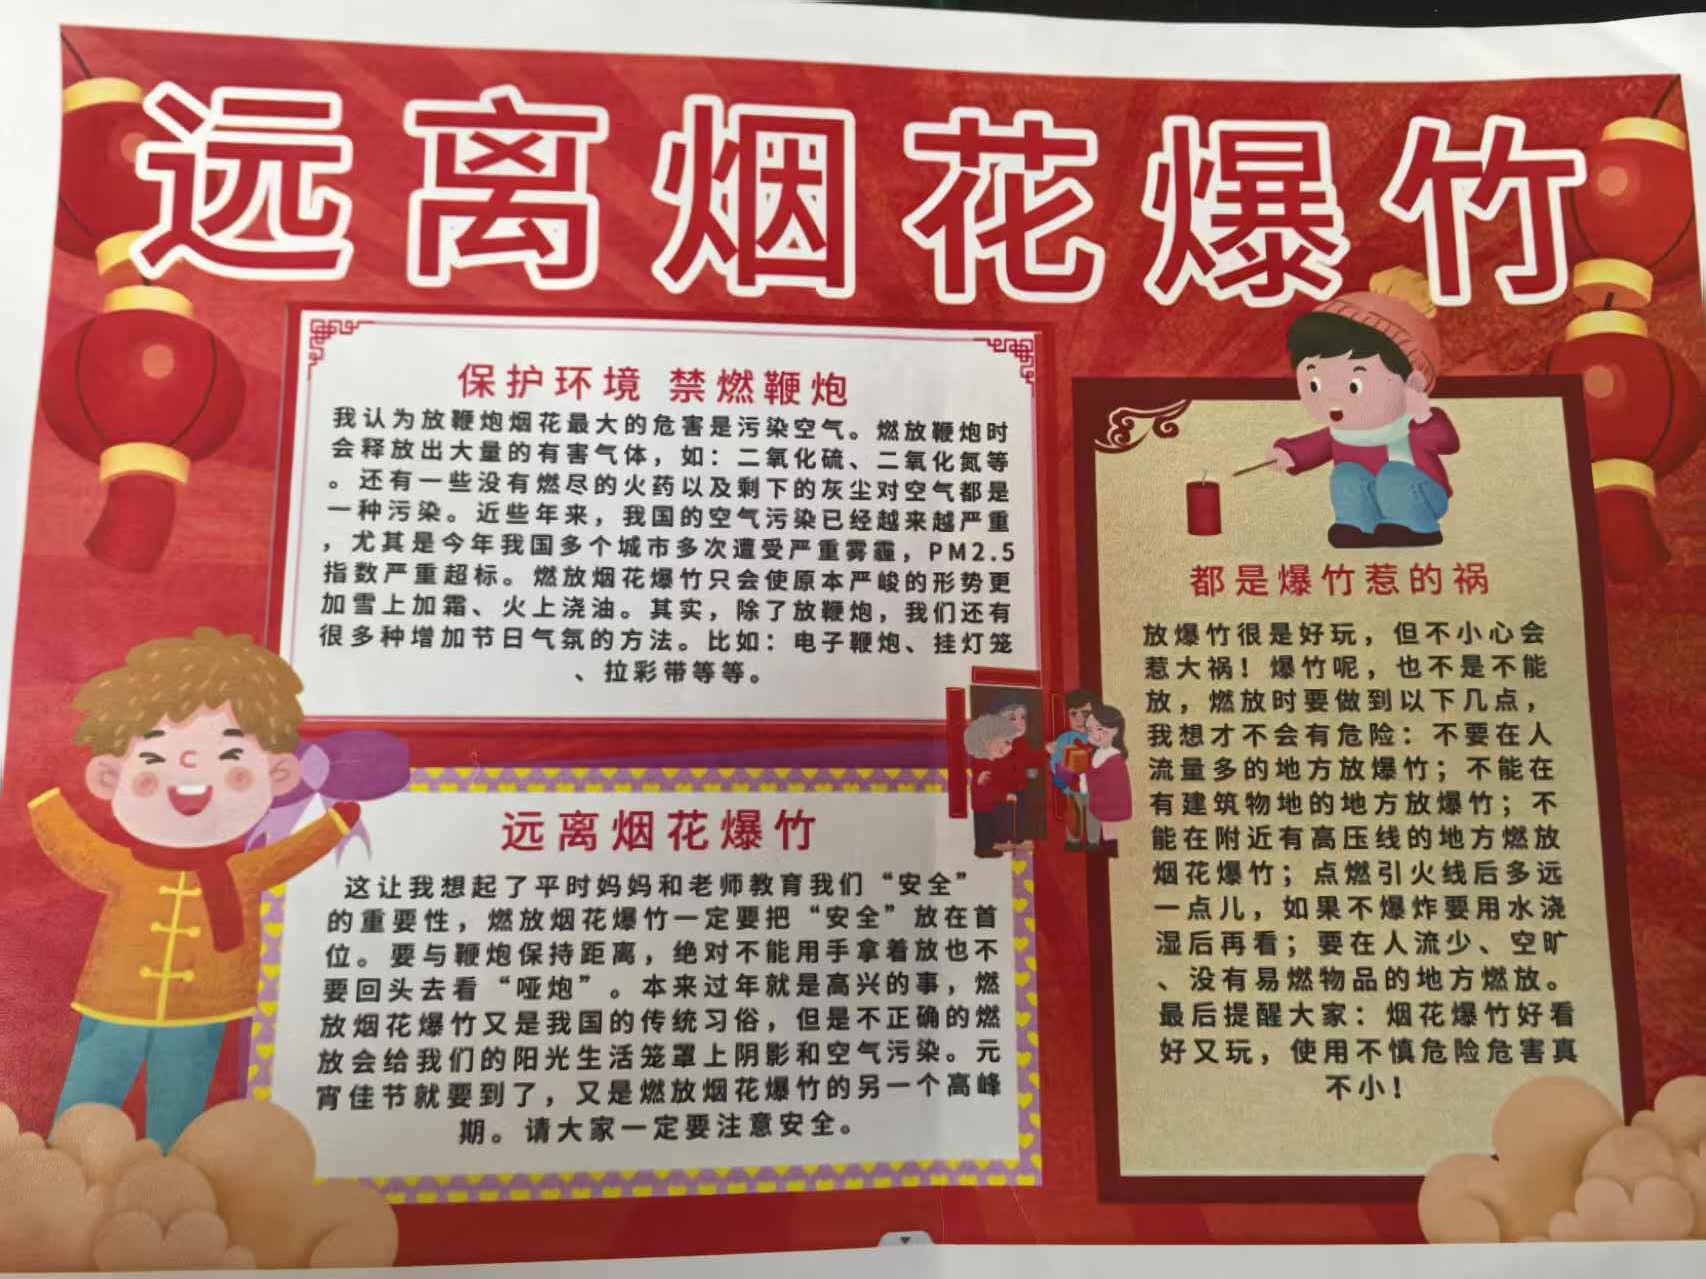 远离烟花爆竹
保护环境 禁燃鞭炮
我认为放鞭炮烟花最大的危害是污染空气。燃放鞭炮时
会释放出大量的有害气体，如：二氧化硫、二氧化氮等
。还有一些没有燃尽的火药以及剩下的灰尘对空气都是
一种污染。近些年来，我国的空气污染已经越来越严重
，尤其是今年我国多个城市多次遭受严重雾霾，PM2.5
指数严重超标。燃放烟花爆竹只会使原本严峻的形势更
加雪上加霜、火上浇油。其实，除了放鞭炮，我们还有
很多种增加节日气氛的方法。比如：电子鞭炮、挂灯笼
、拉彩带等等。
远离烟花爆竹
这让我想起了平时妈妈和老师教育我们“安全”
的重要性，燃放烟花爆竹一定要把“安全”放在首
位。要与鞭炮保持距离，绝对不能用手拿着放也不
要回头去看“哑炮”。本来过年就是高兴的事，燃
放烟花爆竹又是我国的传统习俗，但是不正确的燃
放会给我们的阳光生活笼罩上阴影和空气污染。元
宵佳节就要到了，又是燃放烟花爆竹的另一个高峰
期。请大家一定要注意安全。
都是爆竹惹的祸
放爆竹很是好玩，但不小心会
惹大祸！爆竹呢，也不是不能
放，燃放时要做到以下几点，
我想才不会有危险：不要在人
流量多的地方放爆竹；不能在
有建筑物地的地方放爆竹；不
能在附近有高压线的地方燃放
烟花爆竹；点燃引火线后多远
一点儿，如果不爆炸要用水浇
湿后再看；要在人流少、空旷
、没有易燃物品的地方燃放。
最后提醒大家：烟花爆竹好看
好又玩，使用不慎危险危害真
不小！